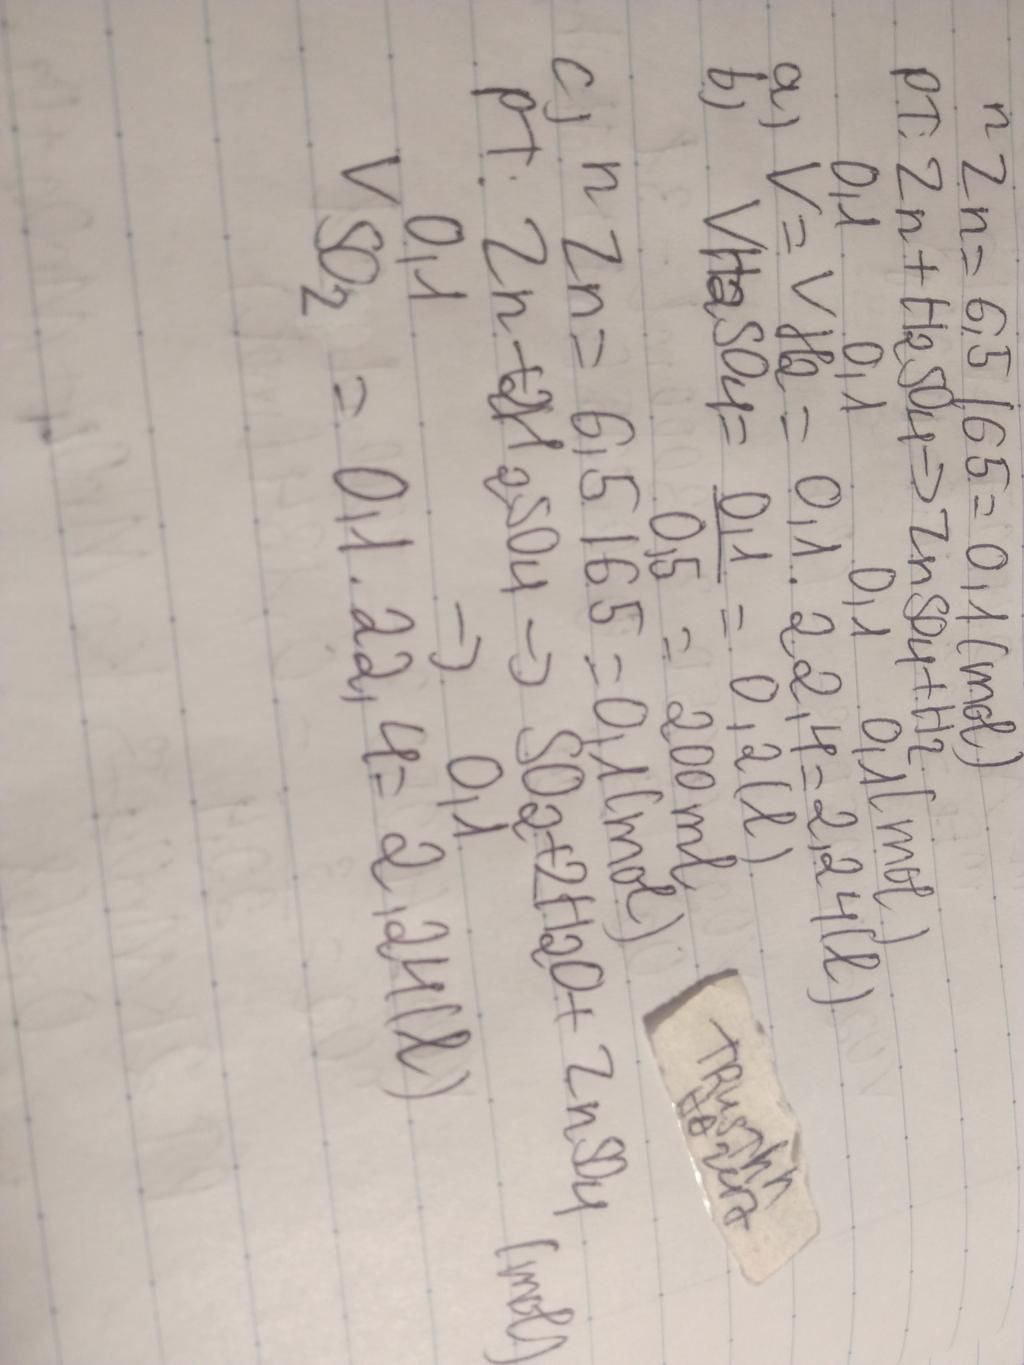 n Zn = 6,5/65 = 0,1(mol)
PT: Zn + H2SO4 => ZnSO4 + H2
0,1 0,1 0,1 0,1(mol)
a) V = V H2 = 0,1. 22,4 = 2,24(l)
b) VH2SO4 = 0,1/0,5 = 0,2(l)
= 200ml
c, n Zn = 6,5/65 = 0,1(mol)
PT: Zn + 2H2SO4 -> SO2 + 2H2O + ZnSO4
0,1 => 0,1 (mol)
V SO2 = 0,1. 22,4 = 2,24(l)